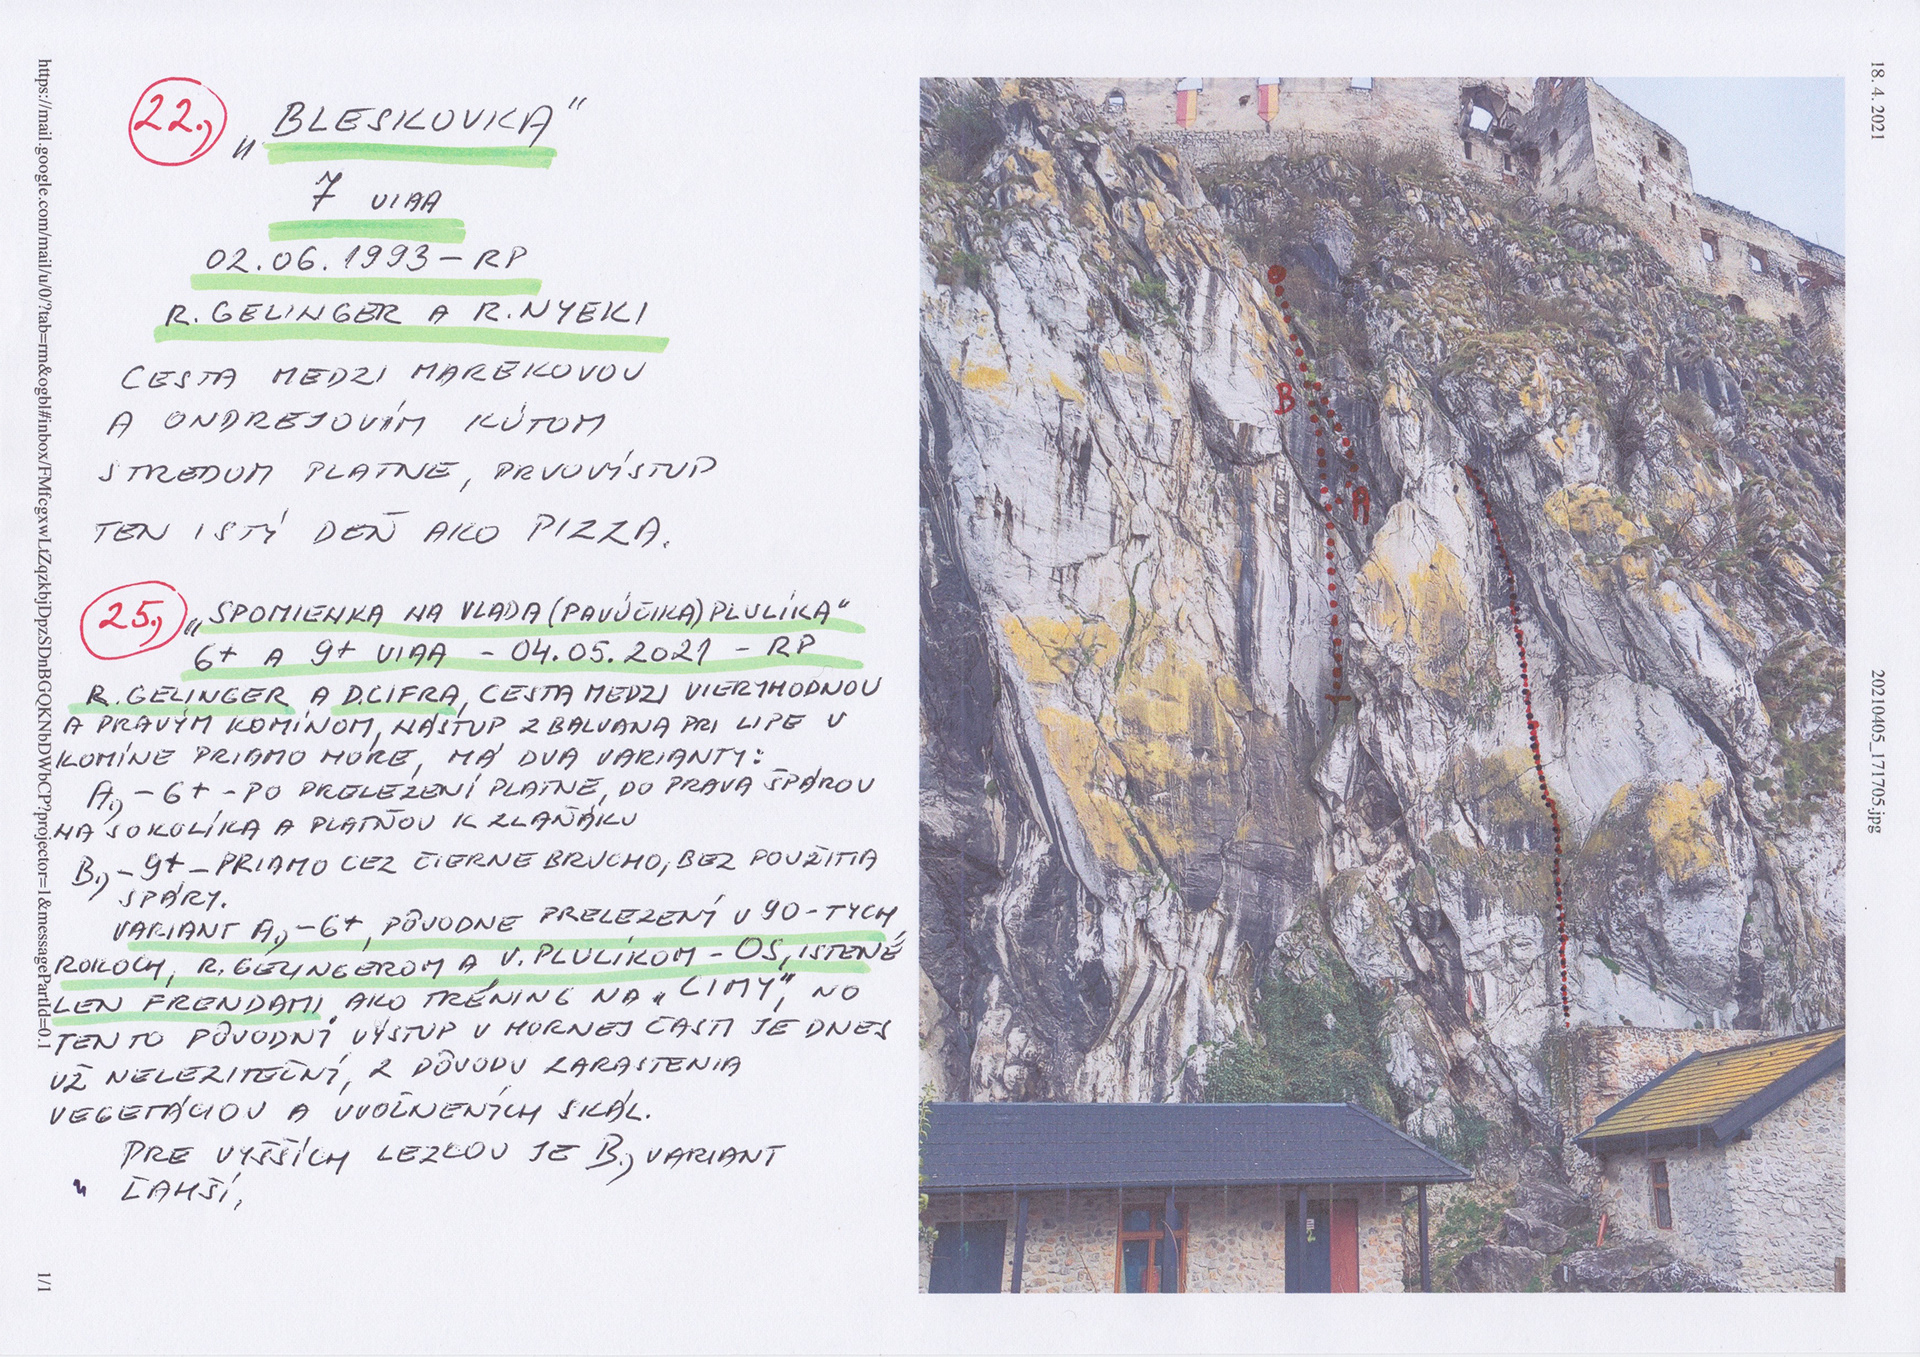 22.,
„BLESKOVKA"
7 UIAA
02.06.1993 - RP
R. GELINGER A R. NYEKI
CESTA MEDZI MAREKOVOU
A ONDREJOVÍM KÚTOM
STREDOM PLATNE, PRVOVÝSTUP
TEN ISTÝ DEŇ AKO PIZZA.
25.,
„SPOMIENKA NA VLADA (PAVÚČIKA) PLULÍKA"
6+ A 9+ UIAA - 04.05.2021 - RP
R. GELINGER A D. CIFRA, CESTA MEDZI VIERYHODNOU
A PRAVÝM KOMÍNOM, NÁSTUP Z BALVANA PRI LIPE V
KOMÍNE PRIAMO HORE, MÁ DVA VARIANTY:
A.) - 6+ - PO PRELEZENÍ PLATNE, DO PRAVA ŠPÁROU
NA SOKOLÍKA A PLATŇOU K ZLAŇÁKU
B.) - 9+ - PRIAMO CEZ ČIERNE BRUCHO, BEZ POUŽITIA
ŠPÁRY.
VARIANT A.) - 6+, PÔVODNE PRELEZENÝ V 90-TYCH
ROKOCH, R. GELINGEROM A V. PLULÍKOM - OS, ISTENÉ
LEN FRENDAMI AKO TRÉNING NA „CIMY", NO
TENTO PÔVODNÝ VÝSTUP V HORNEJ ČASTI JE DNES
UŽ NELEZITEĽNÝ, Z DÔVODU ZARASTENIA
VEGETÁCIOU A UVOĽNENÝCH SKÁL.
PRE VYŠŠÍCH LEZCOV JE B.) VARIANT
ĽAHŠÍ,
B
A
https://mail.google.com/mail/u/0/?tab=rm&ogbl#inbox/FMfcgxwLtZqzkbjDpzSDnBGQKNbDWbCP?projector=1&messagePartId=0.1
1/1
18. 4. 2021
20210405_171705.jpg